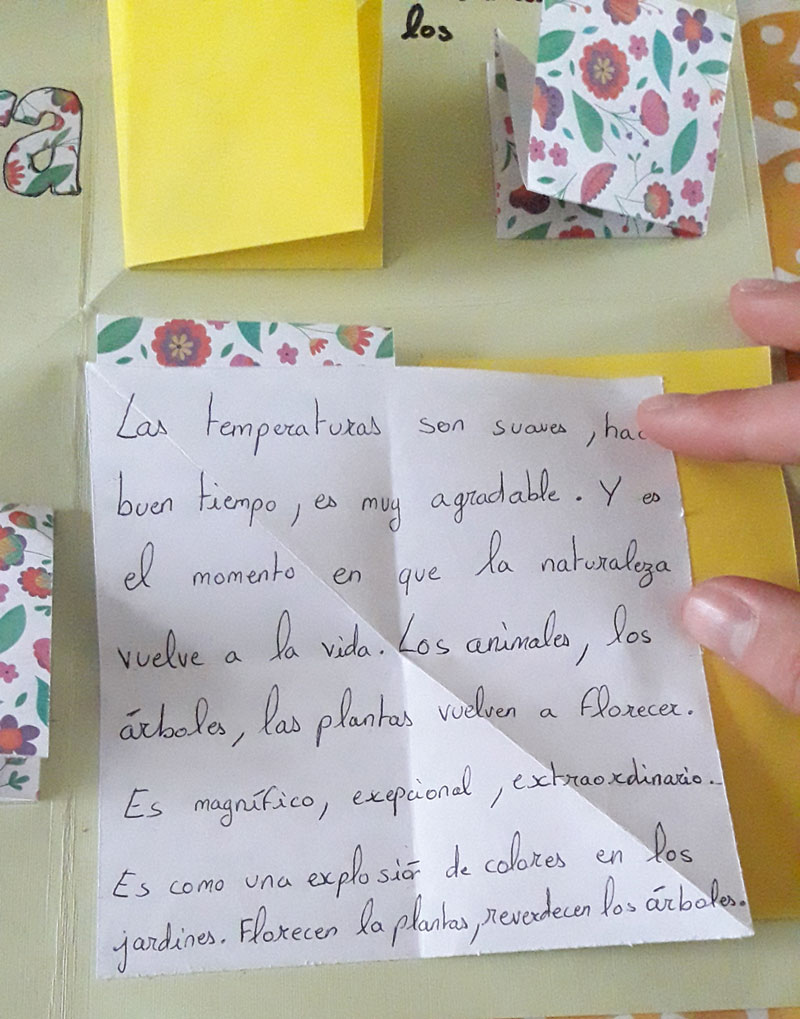 los
a
Las temperaturas son suaves, hac
buen tiempo, es muy agradable. Y es
el momento en que la naturaleza
vuelve a la vida. Los animales, los
árboles, las plantas vuelven a florecer.
Es magnífico, exepcional, extraordinario.
Es como una explosión de colores en los
jardines. Florecen la plantas, reverdecen los árboles.